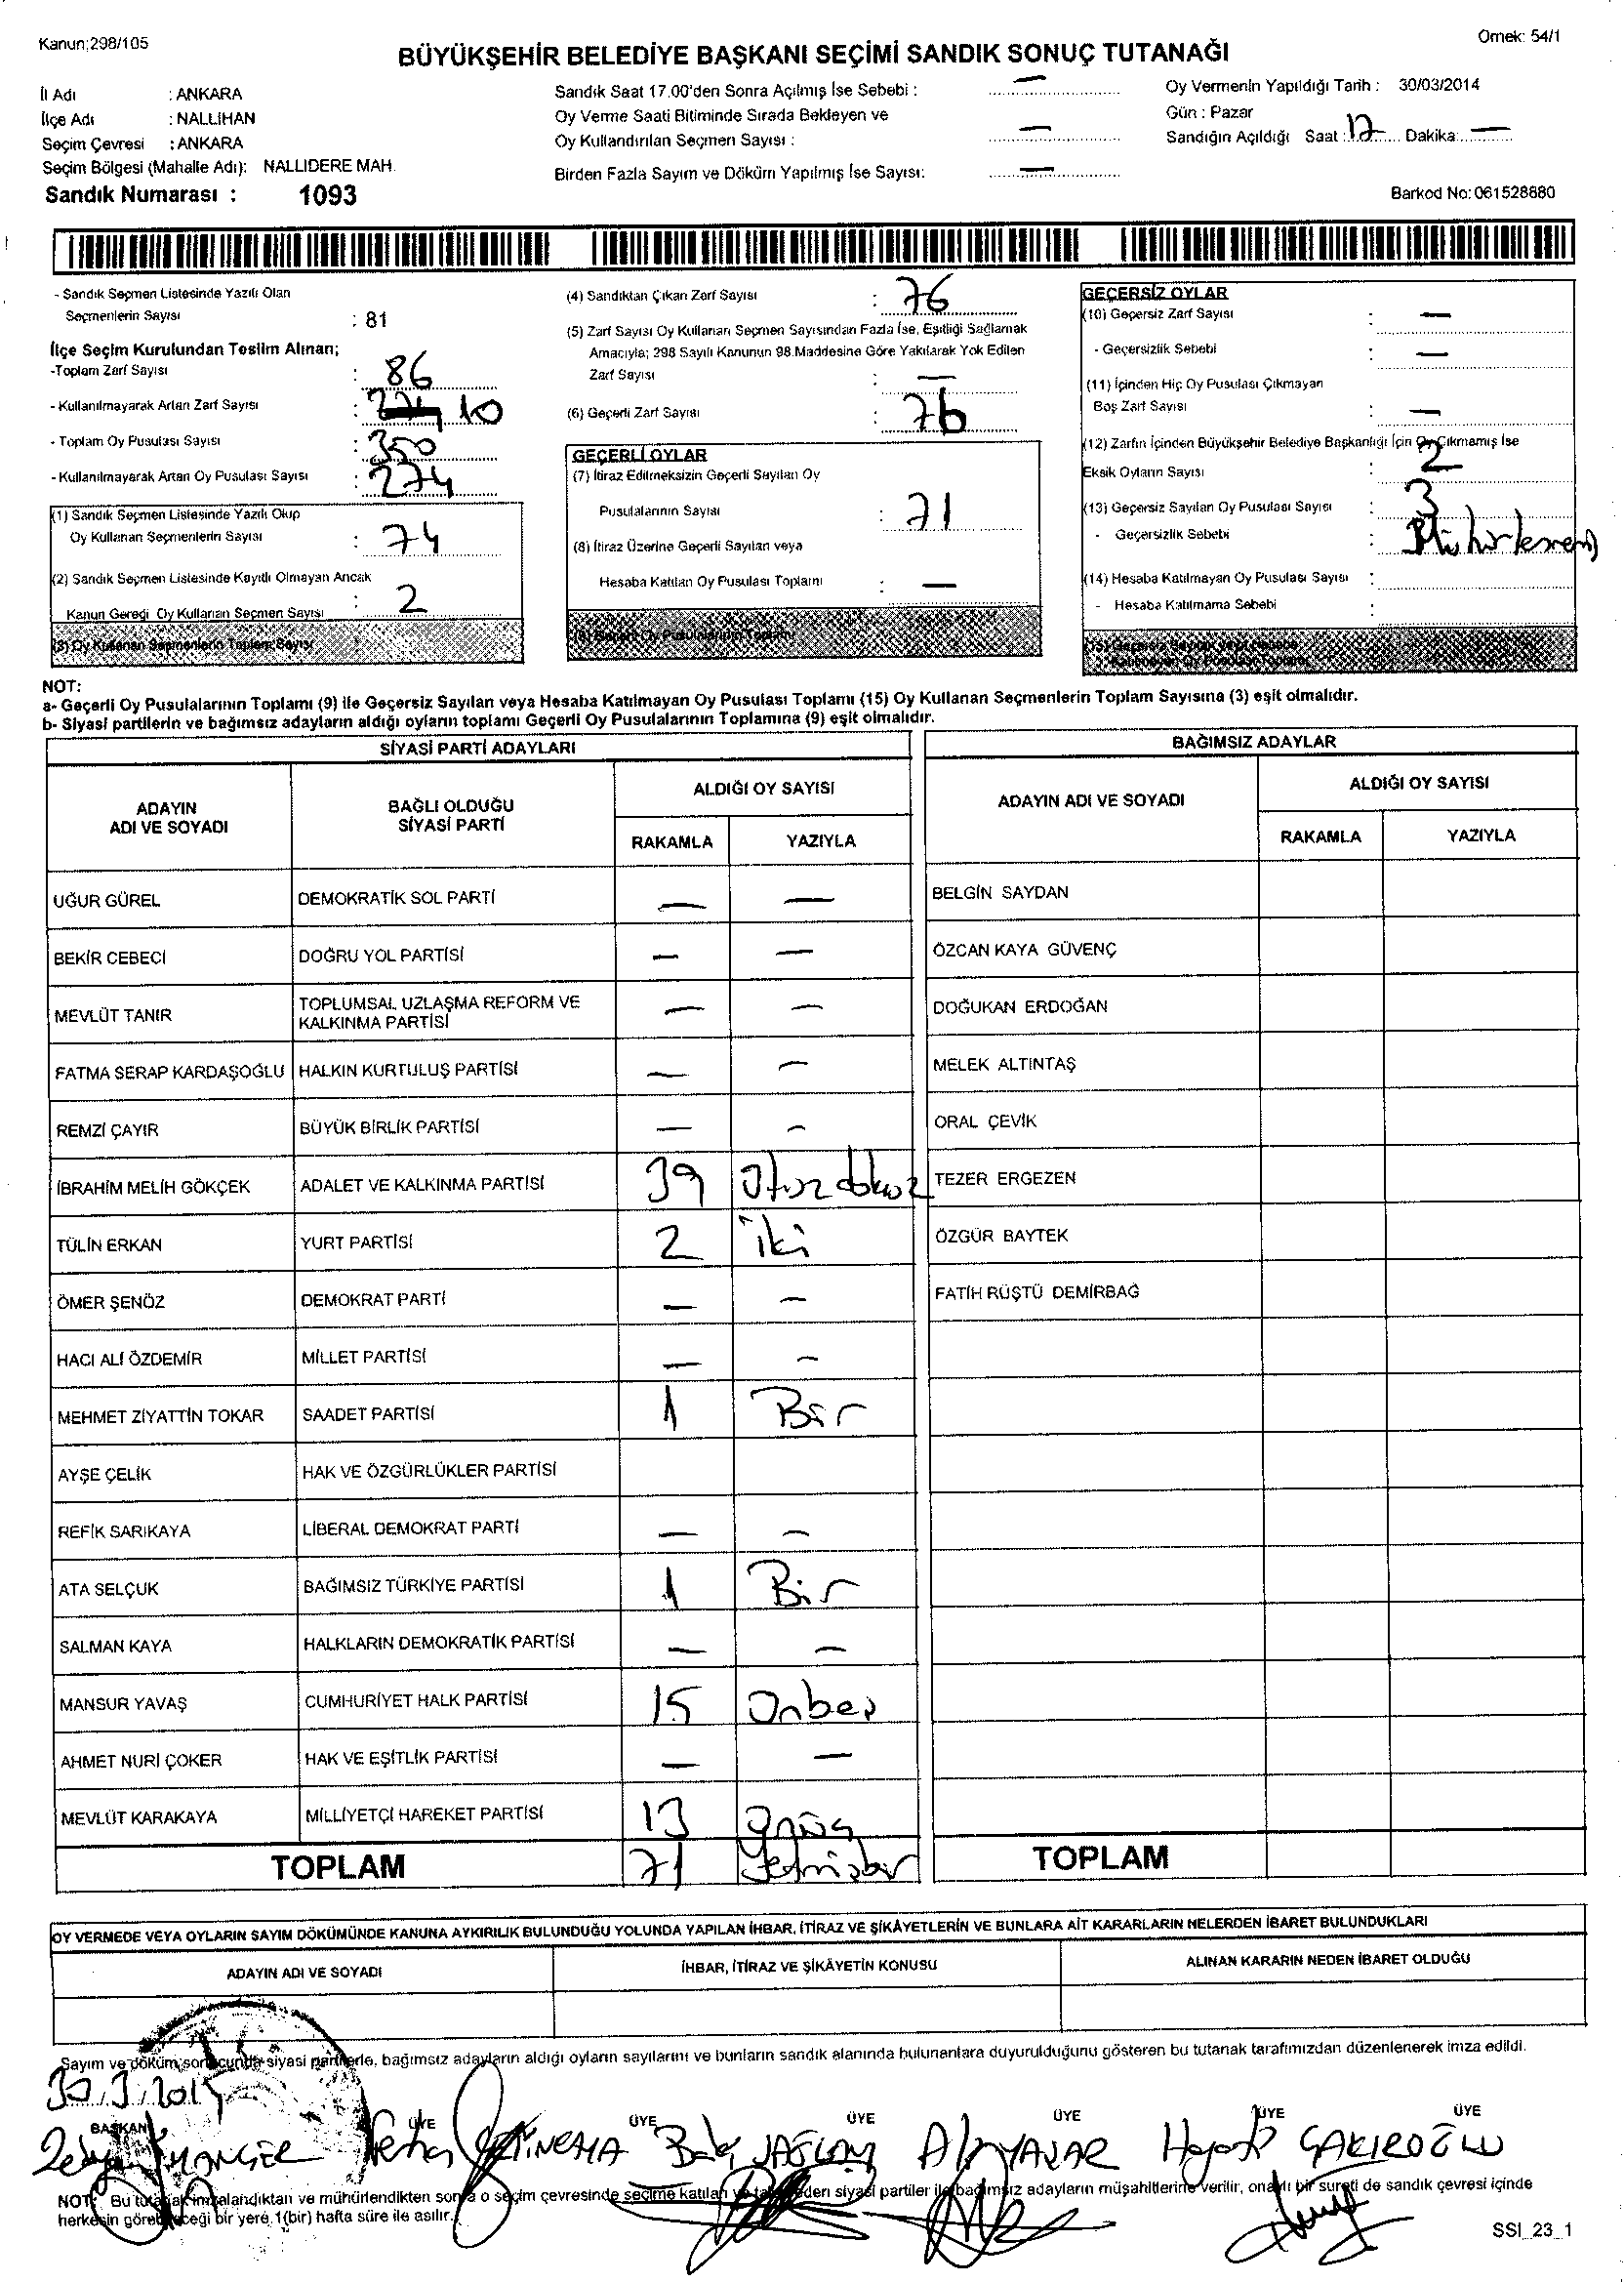 Kanun;298/105
Ornek: 54/1
BÜYÜKŞEHİR BELEDİYE BAŞKANI SEÇİMİ SANDIK SONUÇ TUTANAĞI
İl Adı : ANKARA
İlçe Adı : NALLIHAN
Seçim Çevresi : ANKARA
Seçim Bölgesi (Mahalle Adı): NALLIDERE MAH.
Sandık Numarası : 1093
Sandık Saat 17.00'den Sonra Açılmış İse Sebebi : —
Oy Verme Saati Bitiminde Sırada Bekleyen ve
Oy Kullandırılan Seçmen Sayısı : —
Birden Fazla Sayım ve Döküm Yapılmış İse Sayısı: —
Oy Vermenin Yapıldığı Tarih : 30/03/2014
Gün : Pazar
Sandığın Açıldığı Saat : 17 Dakika: —
Barkod No: 061528880
- Sandık Seçmen Listesinde Yazılı Olan
Seçmenlerin Sayısı : 81
İlçe Seçim Kurulundan Teslim Alınan;
-Toplam Zarf Sayısı : 86
- Kullanılmayarak Artan Zarf Sayısı : 10
- Toplam Oy Pusulası Sayısı : 350
- Kullanılmayarak Artan Oy Pusulası Sayısı : 274
(1) Sandık Seçmen Listesinde Yazılı Olup
Oy Kullanan Seçmenlerin Sayısı : 74
(2) Sandık Seçmen Listesinde Kayıtlı Olmayan Ancak
Kanun Gereği Oy Kullanan Seçmen Sayısı : 2
(3) Oy Kullanan Seçmenlerin Toplam Sayısı
(4) Sandıktan Çıkan Zarf Sayısı : 76
(5) Zarf Sayısı Oy Kullanan Seçmen Sayısından Fazla İse, Eşitliği Sağlamak
Amacıyla; 298 Sayılı Kanunun 98.Maddesine Göre Yakılarak Yok Edilen
Zarf Sayısı : —
(6) Geçerli Zarf Sayısı : 76
GEÇERLİ OYLAR
(7) İtiraz Edilmeksizin Geçerli Sayılan Oy
Pusulalarının Sayısı : 71
(8) İtiraz Üzerine Geçerli Sayılan veya
Hesaba Katılan Oy Pusulası Toplamı : —
(9) Geçerli Oy Pusulalarının Toplamı
GEÇERSİZ OYLAR
(10) Geçersiz Zarf Sayısı : —
- Geçersizlik Sebebi : —
(11) İçinden Hiç Oy Pusulası Çıkmayan
Boş Zarf Sayısı : —
(12) Zarfın İçinden Büyükşehir Belediye Başkanlığı İçin Oy Çıkmamış İse
Eksik Oyların Sayısı : 2
(13) Geçersiz Sayılan Oy Pusulası Sayısı : 3
- Geçersizlik Sebebi :
(14) Hesaba Katılmayan Oy Pusulası Sayısı :
- Hesaba Katılmama Sebebi :
(15) Geçersiz Sayılan veya Hesaba
Katılmayan Oy Pusulası Toplamı
NOT:
a- Geçerli Oy Pusulalarının Toplamı (9) ile Geçersiz Sayılan veya Hesaba Katılmayan Oy Pusulası Toplamı (15) Oy Kullanan Seçmenlerin Toplam Sayısına (3) eşit olmalıdır.
b- Siyasi partilerin ve bağımsız adayların aldığı oyların toplamı Geçerli Oy Pusulalarının Toplamına (9) eşit olmalıdır.
SİYASİ PARTİ ADAYLARI
ADAYIN ADI VE SOYADI
BAĞLI OLDUĞU SİYASİ PARTİ
ALDIĞI OY SAYISI
RAKAMLA YAZIYLA
UĞUR GÜREL DEMOKRATİK SOL PARTİ — —
BEKİR CEBECİ DOĞRU YOL PARTİSİ — —
MEVLÜT TANIR TOPLUMSAL UZLAŞMA REFORM VE KALKINMA PARTİSİ — —
FATMA SERAP KARDAŞOĞLU HALKIN KURTULUŞ PARTİSİ — —
REMZİ ÇAYIR BÜYÜK BİRLİK PARTİSİ — —
İBRAHİM MELİH GÖKÇEK ADALET VE KALKINMA PARTİSİ 39 Otuzdokuz
TÜLİN ERKAN YURT PARTİSİ 2 İki
ÖMER ŞENÖZ DEMOKRAT PARTİ — —
HACI ALİ ÖZDEMİR MİLLET PARTİSİ — —
MEHMET ZİYATTİN TOKAR SAADET PARTİSİ 1 Bir
AYŞE ÇELİK HAK VE ÖZGÜRLÜKLER PARTİSİ
REFİK SARIKAYA LİBERAL DEMOKRAT PARTİ — —
ATA SELÇUK BAĞIMSIZ TÜRKİYE PARTİSİ 1 Bir
SALMAN KAYA HALKLARIN DEMOKRATİK PARTİSİ — —
MANSUR YAVAŞ CUMHURİYET HALK PARTİSİ 15 Onbeş
AHMET NURİ ÇOKER HAK VE EŞİTLİK PARTİSİ — —
MEVLÜT KARAKAYA MİLLİYETÇİ HAREKET PARTİSİ 13 Onüç
TOPLAM 71 Yetmişbir
BAĞIMSIZ ADAYLAR
ADAYIN ADI VE SOYADI
ALDIĞI OY SAYISI
RAKAMLA YAZIYLA
BELGİN SAYDAN
ÖZCAN KAYA GÜVENÇ
DOĞUKAN ERDOĞAN
MELEK ALTINTAŞ
ORAL ÇEVİK
TEZER ERGEZEN
ÖZGÜR BAYTEK
FATİH RÜŞTÜ DEMİRBAĞ
TOPLAM
OY VERMEDE VEYA OYLARIN SAYIM DÖKÜMÜNDE KANUNA AYKIRILIK BULUNDUĞU YOLUNDA YAPILAN İHBAR, İTİRAZ VE ŞİKÂYETLERİN VE BUNLARA AİT KARARLARIN NELERDEN İBARET BULUNDUKLARI
ADAYIN ADI VE SOYADI İHBAR, İTİRAZ VE ŞİKÂYETİN KONUSU ALINAN KARARIN NEDEN İBARET OLDUĞU
Sayım ve döküm sonucunda siyasi partilerle, bağımsız adayların aldığı oyların sayılarını ve bunların sandık alanında bulunanlara duyurulduğunu gösteren bu tutanak tarafımızdan düzenlenerek imza edildi.
30.3.2014
BAŞKAN ÜYE ÜYE ÜYE ÜYE ÜYE ÜYE
ÇAKIROĞLU
NOT: Bu tutanak imzalandıktan ve mühürlendikten sonra o seçim çevresinde seçime katılan ve talep eden siyasi partiler ile bağımsız adayların müşahitlerine verilir, onaylı bir sureti de sandık çevresi içinde
herkesin görebileceği bir yere 1(bir) hafta süre ile asılır.
SSI_23_1